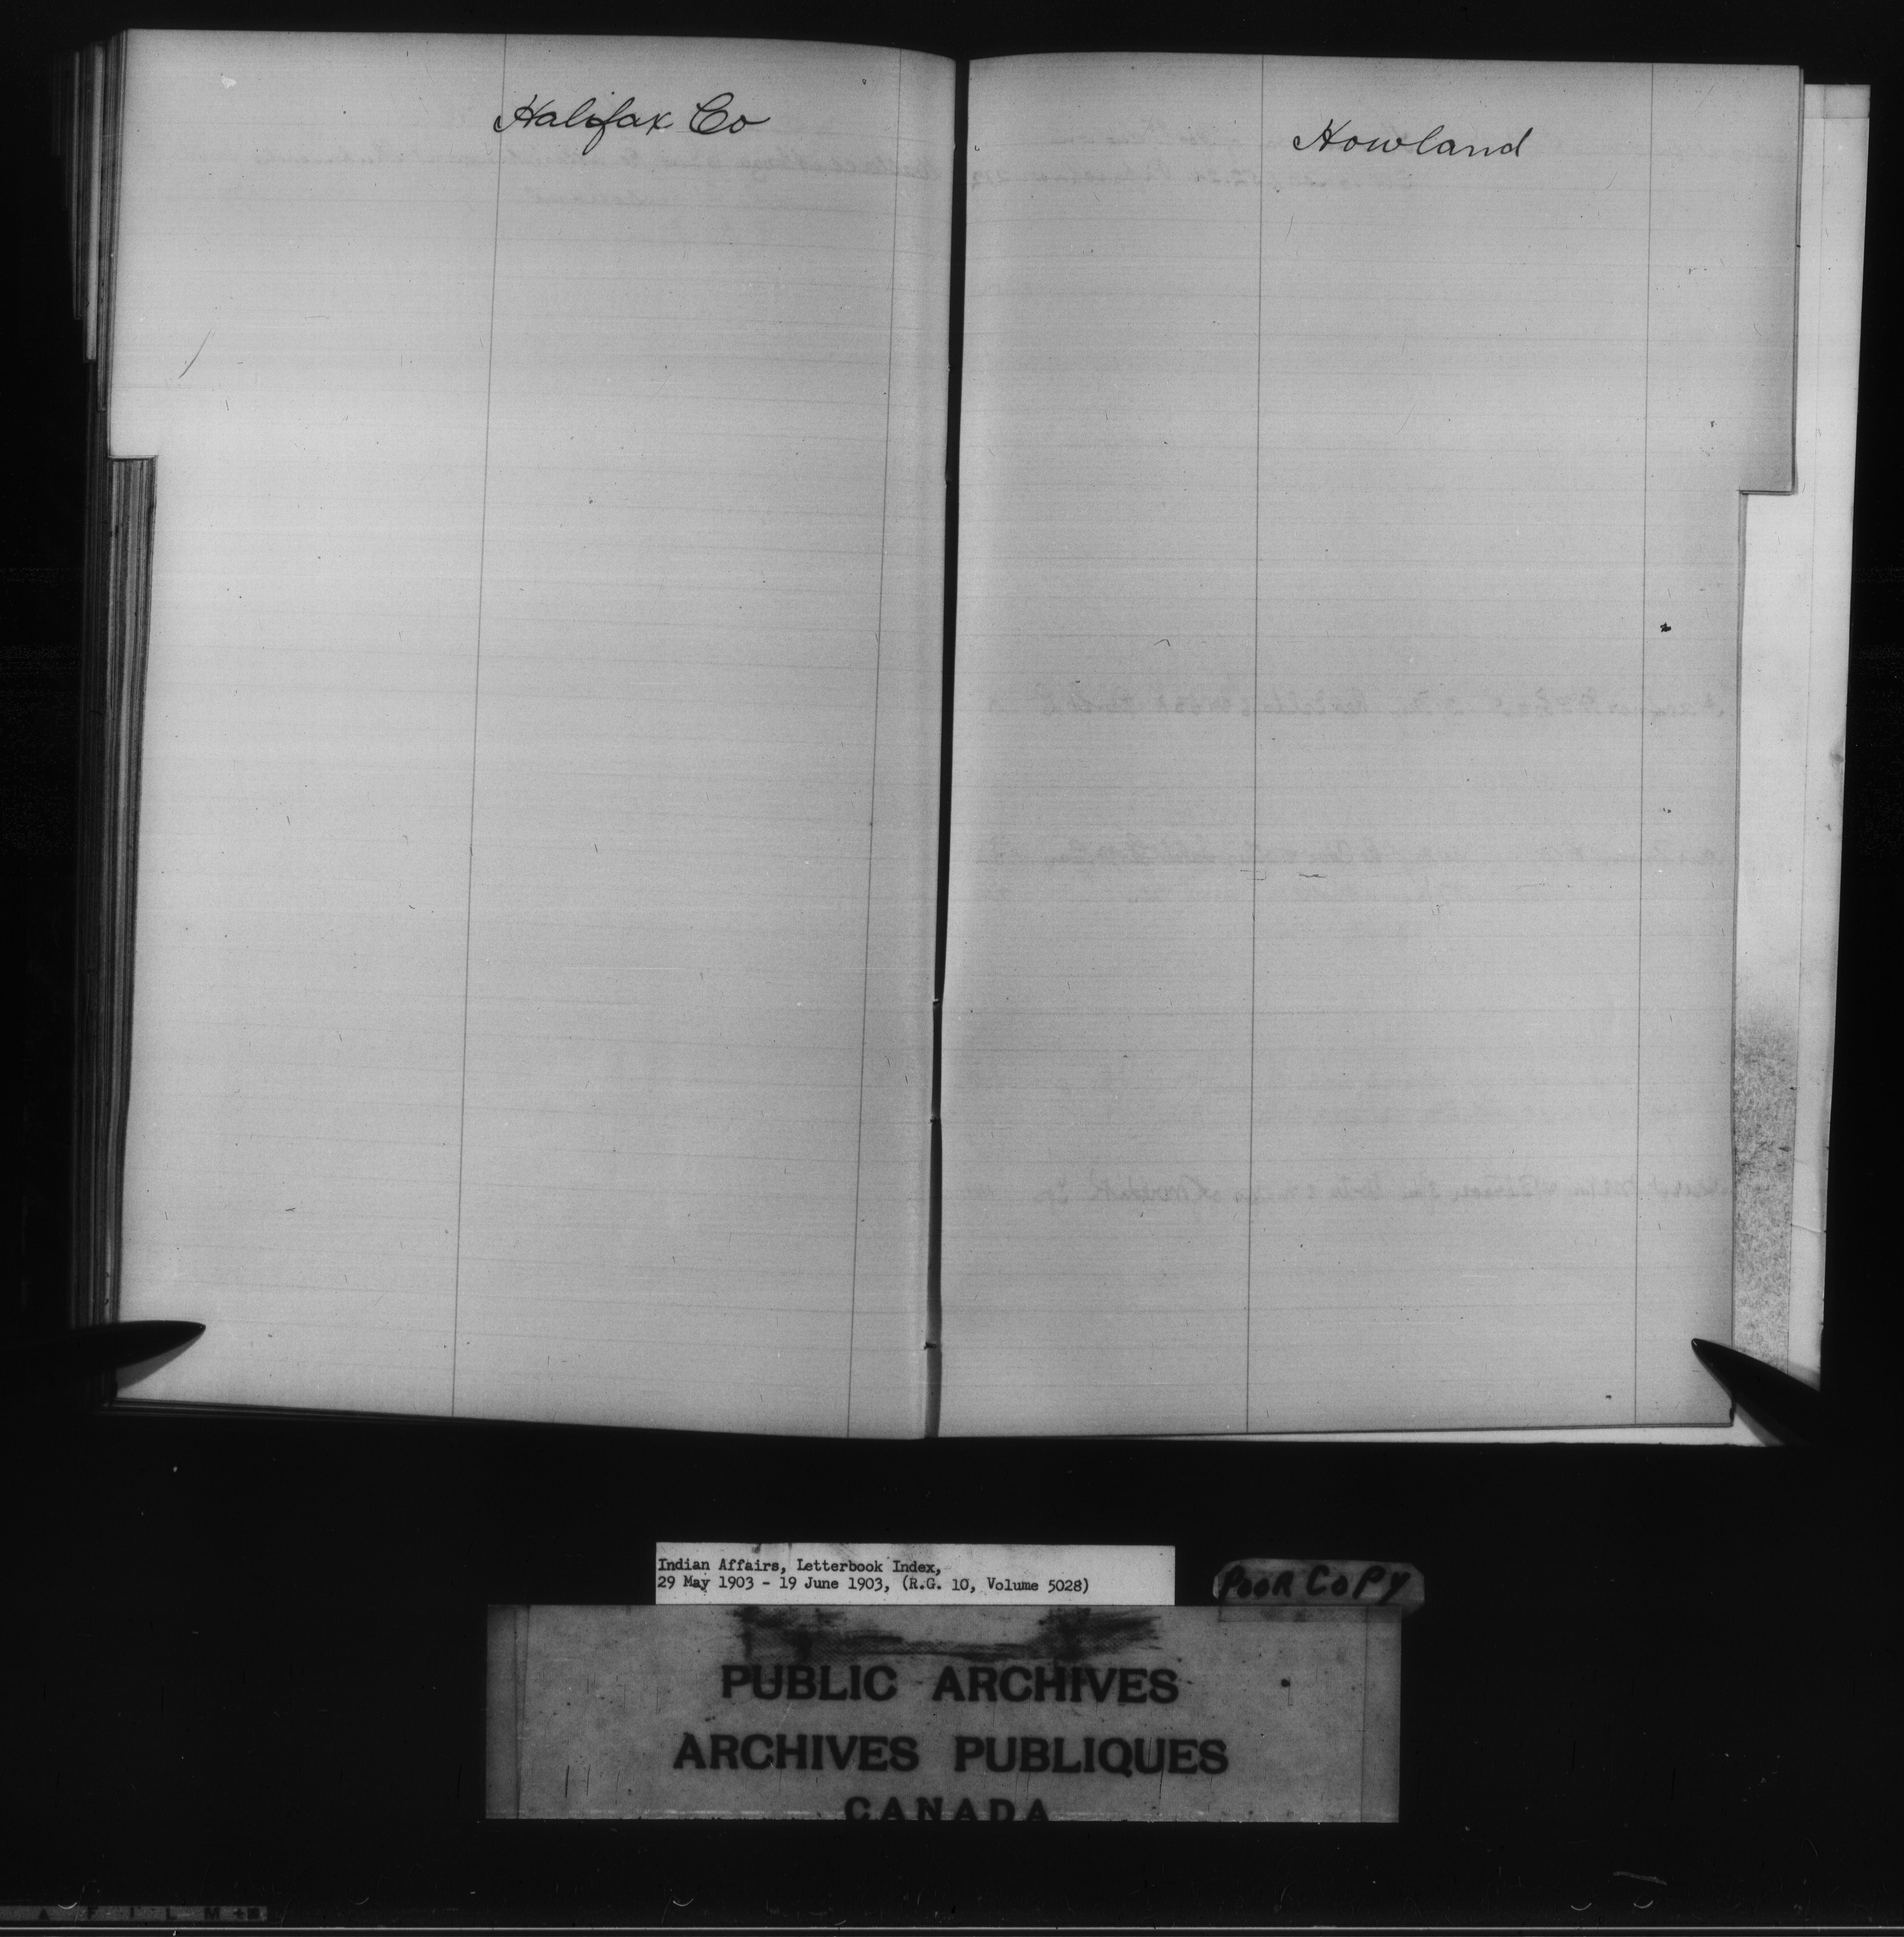 Halifax Co
Howland
Indian Affairs, Letterbook Index,
29 May 1903 - 19 June 1903, (R.G. 10, Volume 5028)
POOR COPY
PUBLIC ARCHIVES
ARCHIVES PUBLIQUES
CANADA